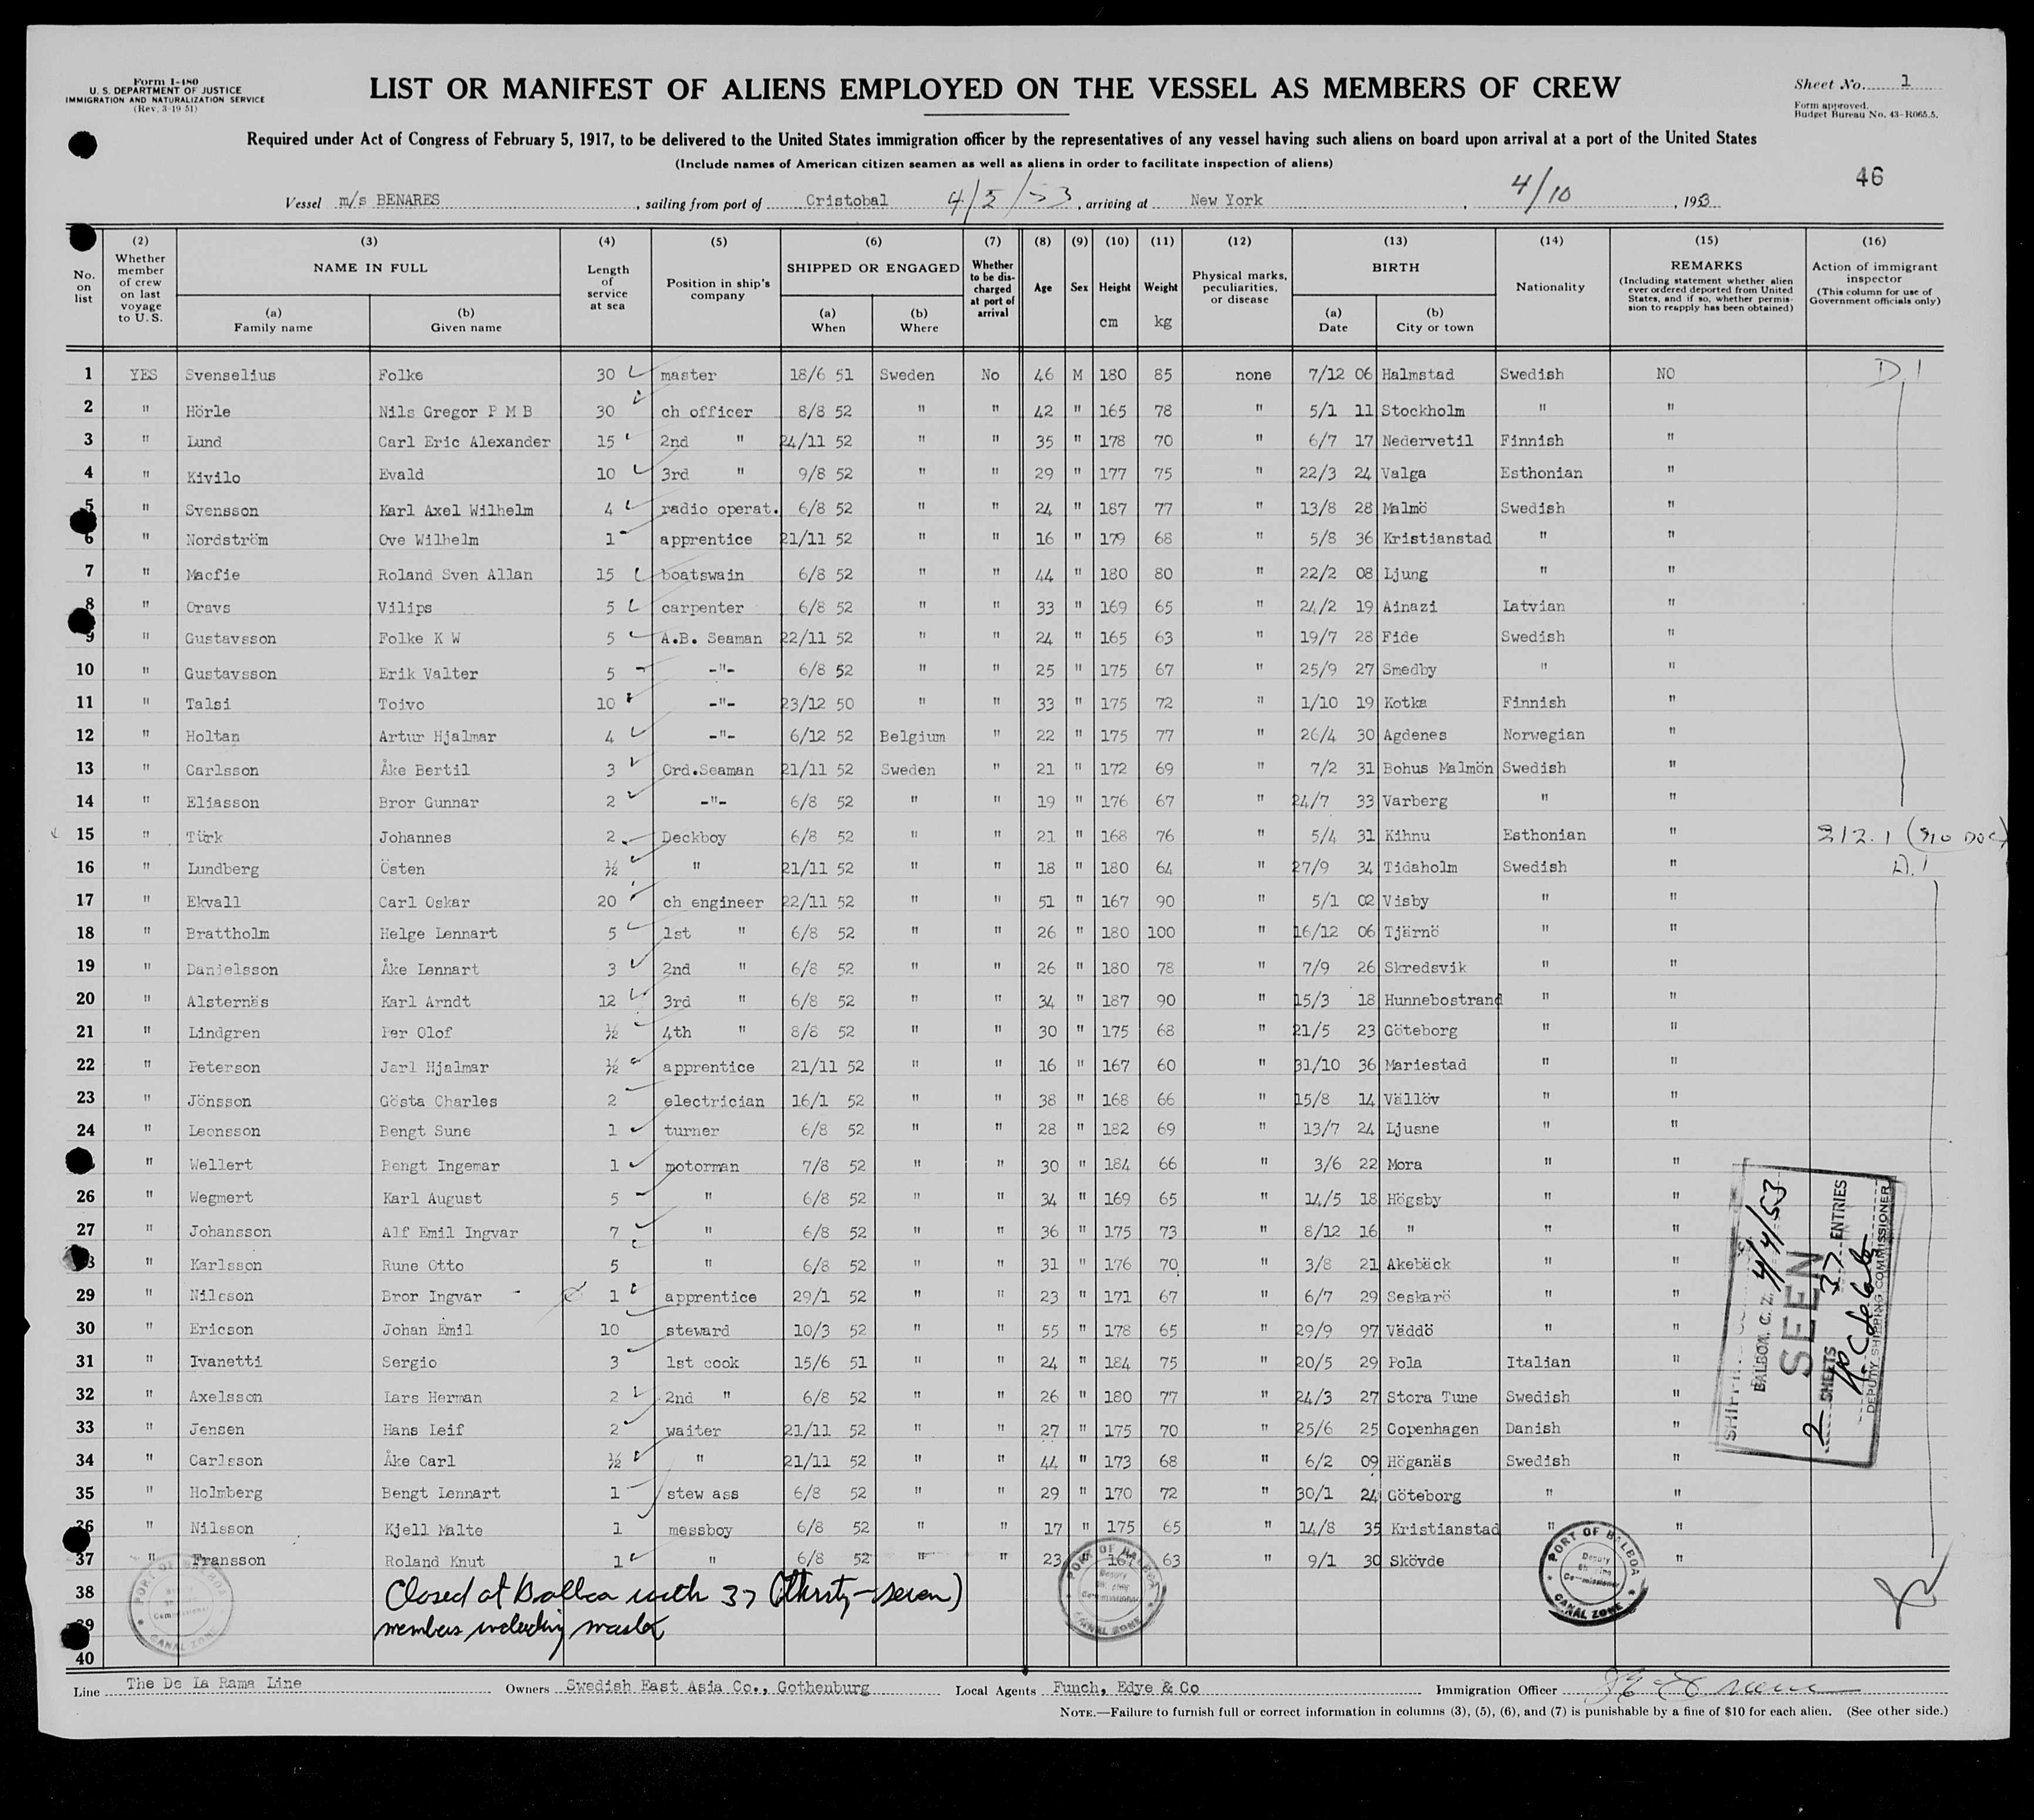 Form I-480
U. S. DEPARTMENT OF JUSTICE
IMMIGRATION AND NATURALIZATION SERVICE
(Rev. 3-19-51)
LIST OR MANIFEST OF ALIENS EMPLOYED ON THE VESSEL AS MEMBERS OF CREW
Sheet No. 1
Form approved.
Budget Bureau No. 43-R065.5.
Required under Act of Congress of February 5, 1917, to be delivered to the United States immigration officer by the representatives of any vessel having such aliens on board upon arrival at a port of the United States
(Include names of American citizen seamen as well as aliens in order to facilitate inspection of aliens)
46
Vessel m/s BENARES , sailing from port of Cristobal 4/5/53 , arriving at New York , 4/10 , 1953
No. on list (2) Whether member of crew on last voyage to U.S. (3) NAME IN FULL (a) Family name (b) Given name (4) Length of service at sea (5) Position in ship's company (6) SHIPPED OR ENGAGED (a) When (b) Where (7) Whether to be discharged at port of arrival (8) Age (9) Sex (10) Height cm (11) Weight kg (12) Physical marks, peculiarities, or disease (13) BIRTH (a) Date (b) City or town (14) Nationality (15) REMARKS (Including statement whether alien ever ordered deported from United States, and if so, whether permission to reapply has been obtained) (16) Action of immigrant inspector (This column for use of Government officials only)
1 YES Svenselius Folke 30 master 18/6 51 Sweden No 46 M 180 85 none 7/12 06 Halmstad Swedish NO D 1
2 " Hörle Nils Gregor P M B 30 ch officer 8/8 52 " " 42 " 165 78 " 5/1 11 Stockholm " "
3 " Lund Carl Eric Alexander 15 2nd " 24/11 52 " " 35 " 178 70 " 6/7 17 Nedervetil Finnish "
4 " Kivilo Evald 10 3rd " 9/8 52 " " 29 " 177 75 " 22/3 24 Valga Esthonian "
5 " Svensson Karl Axel Wilhelm 4 radio operat. 6/8 52 " " 24 " 187 77 " 13/8 28 Malmö Swedish "
6 " Nordström Ove Wilhelm 1 apprentice 21/11 52 " " 16 " 179 68 " 5/8 36 Kristianstad " "
7 " Macfie Roland Sven Allan 15 boatswain 6/8 52 " " 44 " 180 80 " 22/2 08 Ljung " "
8 " Oravs Vilips 5 carpenter 6/8 52 " " 33 " 169 65 " 24/2 19 Ainazi Latvian "
9 " Gustavsson Folke K W 5 A.B. Seaman 22/11 52 " " 24 " 165 63 " 19/7 28 Fide Swedish "
10 " Gustavsson Erik Valter 5 -"- 6/8 52 " " 25 " 175 67 " 25/9 27 Smedby " "
11 " Talsi Toivo 10 -"- 23/12 50 " " 33 " 175 72 " 1/10 19 Kotka Finnish "
12 " Holtan Artur Hjalmar 4 -"- 6/12 52 Belgium " 22 " 175 77 " 26/4 30 Agdenes Norwegian "
13 " Carlsson Åke Bertil 3 Ord.Seaman 21/11 52 Sweden " 21 " 172 69 " 7/2 31 Bohus Malmön Swedish "
14 " Eliasson Bror Gunnar 2 -"- 6/8 52 " " 19 " 176 67 " 24/7 33 Varberg " "
15 " Türk Johannes 2 Deckboy 6/8 52 " " 21 " 168 76 " 5/4 31 Kihnu Esthonian "
16 " Lundberg Östen ½ " 21/11 52 " " 18 " 180 64 " 27/9 34 Tidaholm Swedish " D.1
17 " Ekvall Carl Oskar 20 ch engineer 22/11 52 " " 51 " 167 90 " 5/1 02 Visby " "
18 " Brattholm Helge Lennart 5 1st " 6/8 52 " " 26 " 180 100 " 16/12 06 Tjärnö " "
19 " Danielsson Åke Lennart 3 2nd " 6/8 52 " " 26 " 180 78 " 7/9 26 Skredsvik " "
20 " Alsternäs Karl Arndt 12 3rd " 6/8 52 " " 34 " 187 90 " 15/3 18 Hunnebostrand " "
21 " Lindgren Per Olof ½ 4th " 8/8 52 " " 30 " 175 68 " 21/5 23 Göteborg " "
22 " Peterson Jarl Hjalmar ½ apprentice 21/11 52 " " 16 " 167 60 " 31/10 36 Mariestad " "
23 " Jönsson Gösta Charles 2 electrician 16/1 52 " " 38 " 168 66 " 15/8 14 Vällöv " "
24 " Leonsson Bengt Sune 1 turner 6/8 52 " " 28 " 182 69 " 13/7 24 Ljusne " "
" Wellert Bengt Ingemar 1 motorman 7/8 52 " " 30 " 184 66 " 3/6 22 Mora " "
26 " Wegmert Karl August 5 " 6/8 52 " " 34 " 169 65 " 14/5 18 Högsby " "
27 " Johansson Alf Emil Ingvar 7 " 6/8 52 " " 36 " 175 73 " 8/12 16 " " "
8 " Karlsson Rune Otto 5 " 6/8 52 " " 31 " 176 70 " 3/8 21 Akebäck " "
29 " Nilsson Bror Ingvar 1 apprentice 29/1 52 " " 23 " 171 67 " 6/7 29 Seskarö " "
30 " Ericson Johan Emil 10 steward 10/3 52 " " 55 " 178 65 " 29/9 97 Väddö " "
31 " Ivanetti Sergio 3 1st cook 15/6 51 " " 24 " 184 75 " 20/5 29 Pola Italian "
32 " Axelsson Lars Herman 2 2nd " 6/8 52 " " 26 " 180 77 " 24/3 27 Stora Tune Swedish "
33 " Jensen Hans Leif 2 waiter 21/11 52 " " 27 " 175 70 " 25/6 25 Copenhagen Danish "
34 " Carlsson Åke Carl ½ " 21/11 52 " " 44 " 173 68 " 6/2 09 Höganäs Swedish "
35 " Holmberg Bengt Lennart 1 stew ass 6/8 52 " " 29 " 170 72 " 30/1 24 Göteborg " "
36 " Nilsson Kjell Malte 1 messboy 6/8 52 " " 17 " 175 65 " 14/8 35 Kristianstad " "
37 " Fransson Roland Knut 1 " 6/8 52 " " 23 " 167 63 " 9/1 30 Skövde "
38 Closed at Balboa with 37 (thirty-seven)
39 members including master
40
BALBOA, C. Z. 4/4/53
SEEN
2 SHEETS 37 ENTRIES
DEPUTY SHIPPING COMMISSIONER
PORT OF BALBOA Deputy Shipping Commissioner CANAL ZONE
PORT OF BALBOA Deputy Shipping Commissioner CANAL ZONE
PORT OF BALBOA Deputy Shipping Commissioner CANAL ZONE
Line The De La Rama Line Owners Swedish East Asia Co., Gothenburg Local Agents Funch, Edye & Co Immigration Officer
NOTE.—Failure to furnish full or correct information in columns (3), (5), (6), and (7) is punishable by a fine of $10 for each alien. (See other side.)